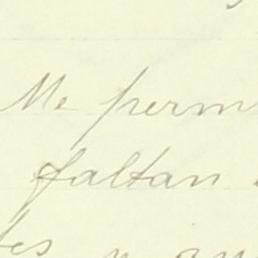 Me perm
faltan
tes